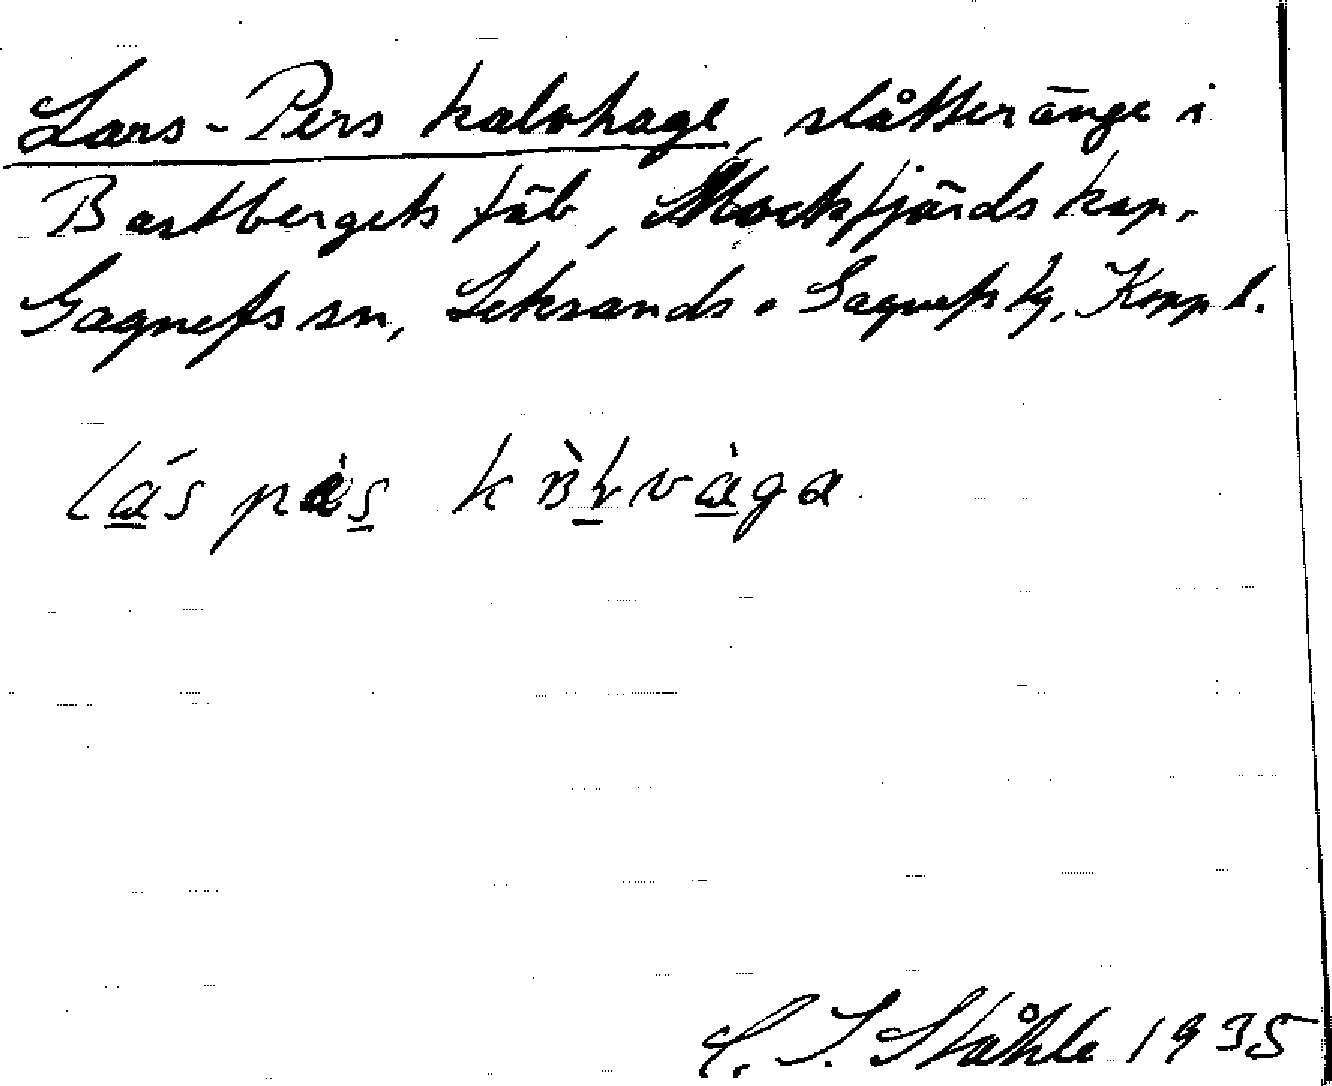 Lars-Pers kalvhage, slåtteränge i
Bastbergets fäb, Mockfjärds kap.
Gagnefs sn, Leksands o Gagnefs tg, Kopp l.
lás pàs kàlvàga
C. I. Ståhle 1935